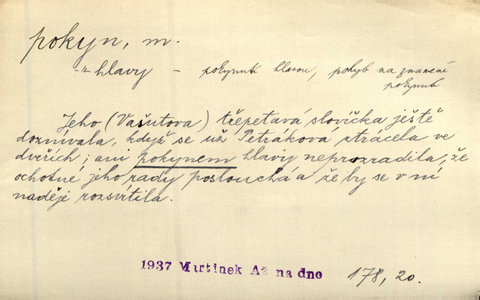 pokyn, m.
-z hlavy – pokynutí hlavou, pohyb na znamení
pokynutí
Jeho (Vašutova) třepetavá slovíčka ještě
doznívala, když se už Petráková ztrácela ve
dveřích; ani pokynem hlavy neprozradila, že
ochotně jeho rady poslouchá a že by se v ní
naděje rozsvítila.
1937 Martínek Až na dno 178, 20.